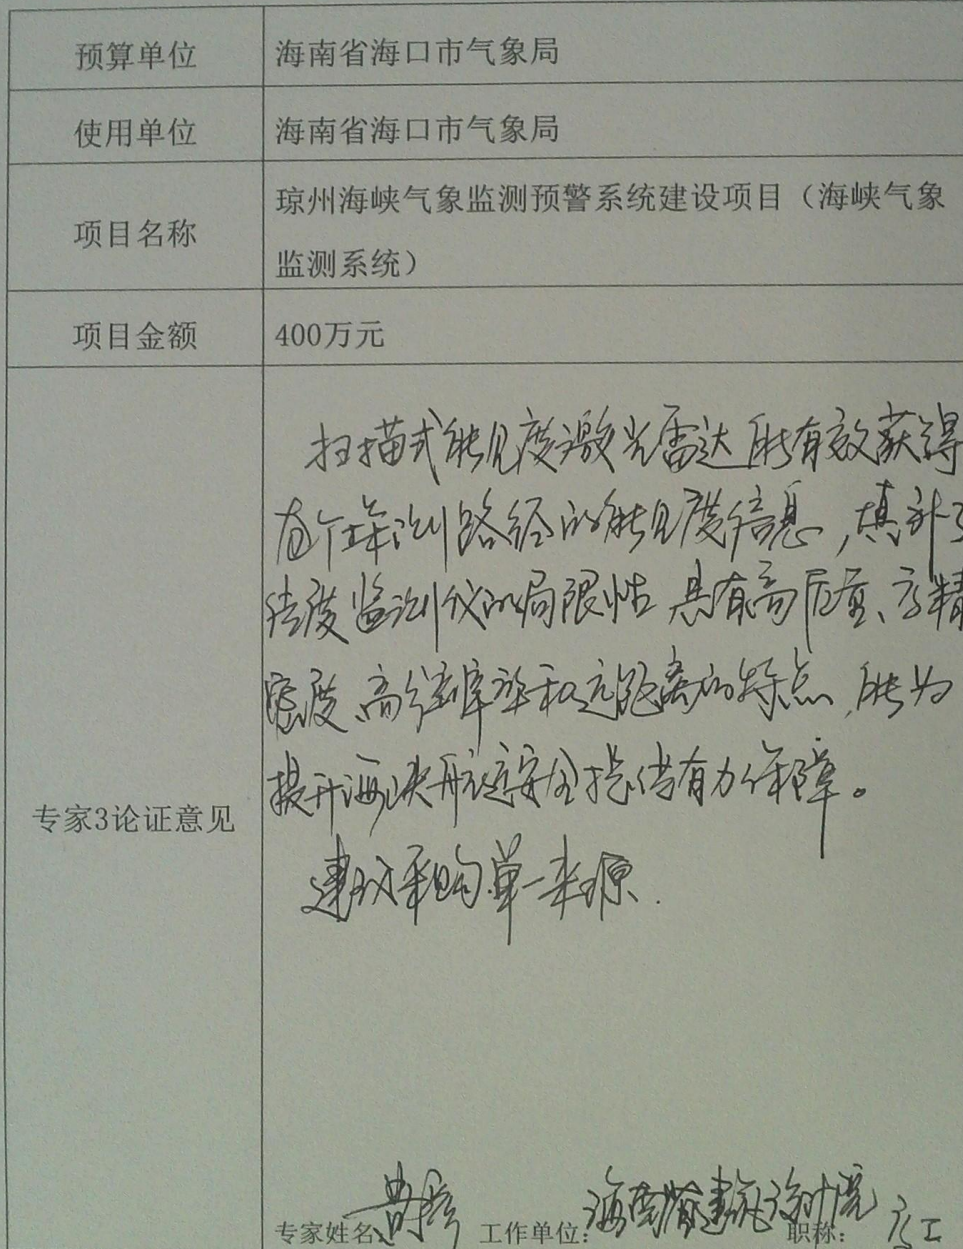 预算单位 海南省海口市气象局
使用单位 海南省海口市气象局
项目名称 琼州海峡气象监测预警系统建设项目（海峡气象
监测系统）
项目金额 400万元
扫描式能见度激光雷达能有效获得
路径的能见度信息，填补了
监测仪的局限性 具有高质量、高精
密度、高分辨率和远距离的特点，能为
专家3论证意见
提升海峡航运安全提供有力保障。
建议采购单一来源.
专家姓名: 工作单位: 海南省建筑设计院 职称: 高工